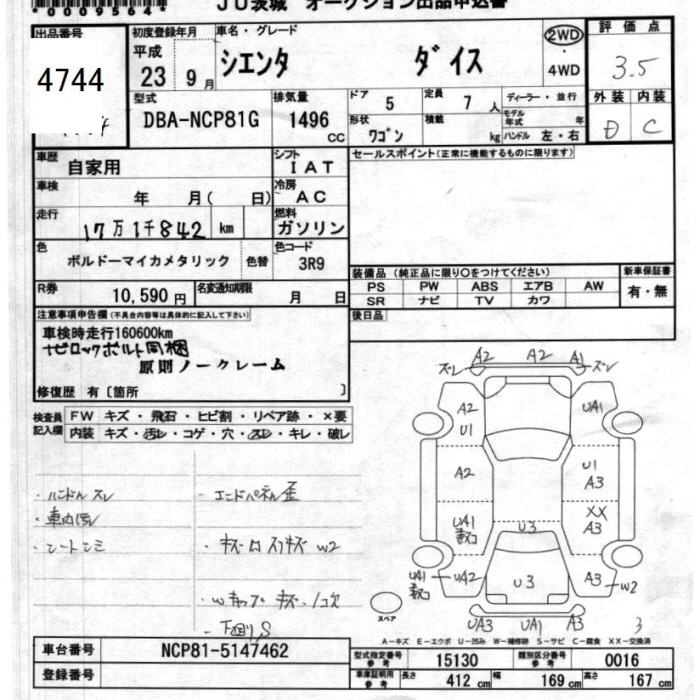 *0009564*
JU茨城 オークション出品申込書
出品番号
4744
初度登録年月
平成
23 9月
車名・グレード
シエンタ ダイス
2WD
4WD
評価点
3.5
外装 内装
D C
型式
DBA-NCP81G
排気量
1496 CC
ドア 5
定員 7 人
形状 ワゴン
積載 kg
ディーラー・並行
モデル年式 年
ハンドル 左・右
車歴
自家用
シフト
IAT
セールスポイント(正常に機能するものに限ります)
車検
年 月( 日)
冷房
AC
走行
17万1千842 km
燃料
ガソリン
色
ボルドーマイカメタリック
色替
色コード
3R9
装備品(純正品に限り○をつけてください)
PS PW ABS エアB AW
SR ナビ TV カワ
新車保証書
有・無
R券
10,590円
名変通知期限
月 日
後日品
注意事項申告欄(不具合内容等は具体的に記入して下さい)
車検時走行160600km
ナビロックボルト同梱
原則ノークレーム
修復歴 有〔箇所 〕
検査員記入欄
FW キズ・飛石・ヒビ割・リペア跡・×要
内装 キズ・汚レ・コゲ・穴・スレ・キレ・破レ
・ハンドルスレ
・車内汚レ
・シートシミ
・エンドパネル歪
・キズロスリキズW2
・Wキャップキズ・ノコ欠
・下廻りS
A2 A2 A1
ズレ ズレ
A2 U1
UA1
A2
U1 A3
UA1
XX A3
U3
UA1 UA2
U3
A3 W2
UA3 UA1 A3
3
スペア
A-キズ E-エクボ U-凹み W-補修跡 S-サビ C-腐食 XX-交換済
車台番号
NCP81-5147462
登録番号
型式指定番号 参考
15130
類別区分番号 参考
0016
車庫証明用 参考
長さ 412 cm
幅 169 cm
高さ 167 cm